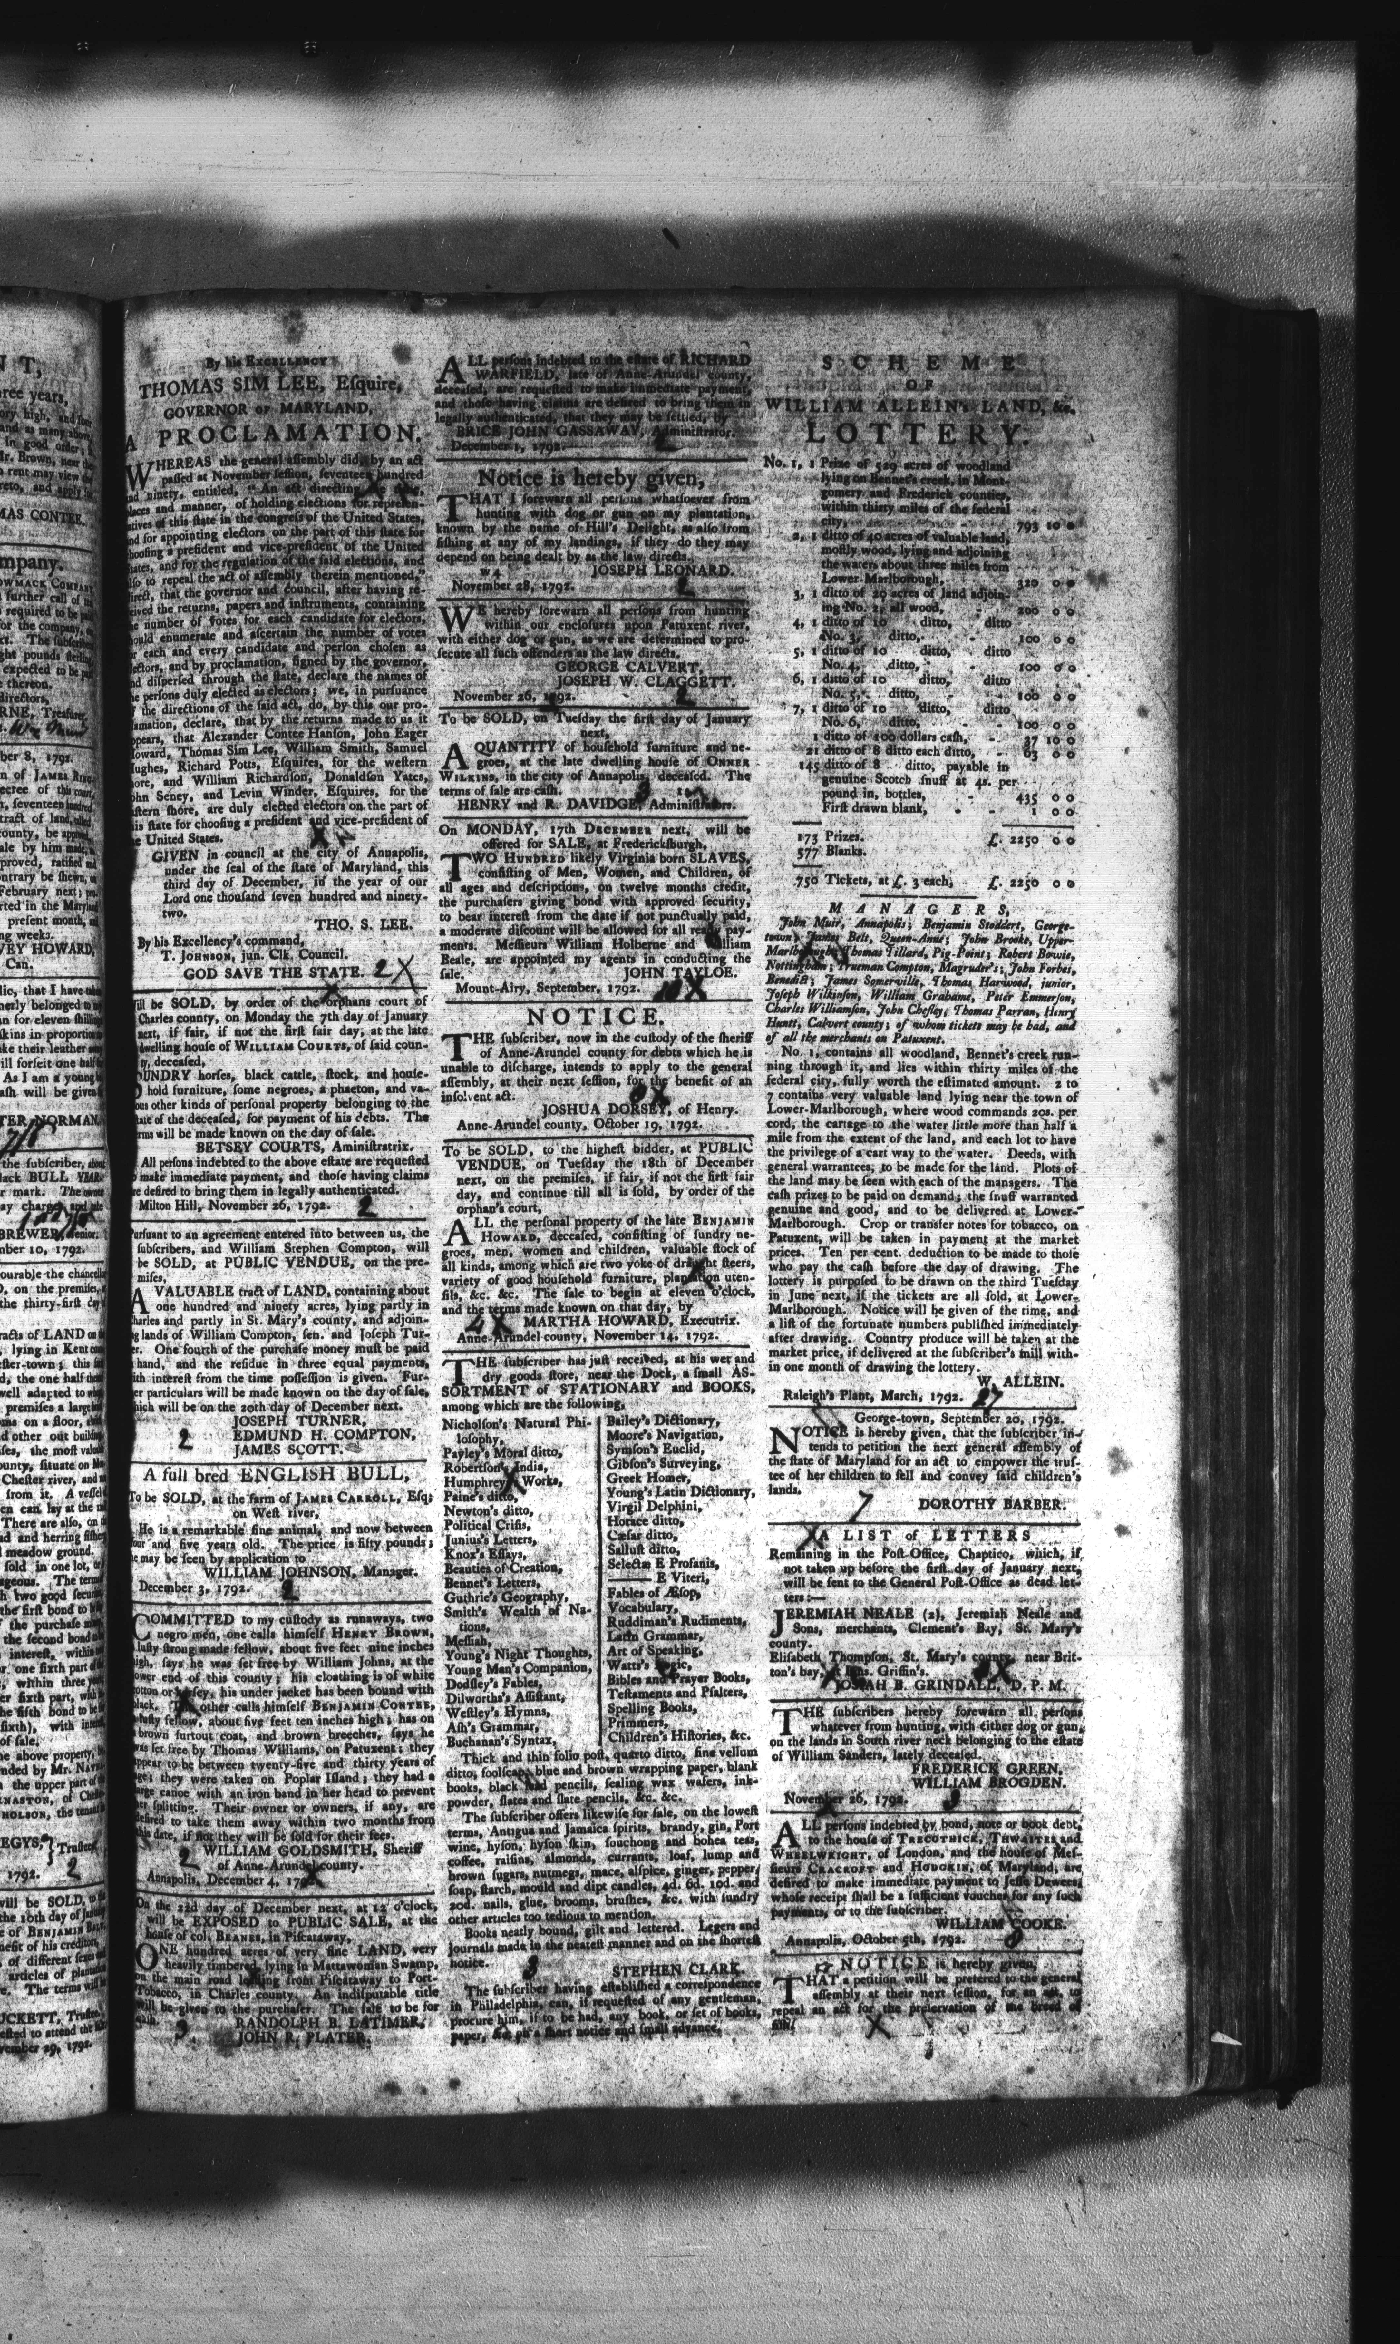 By his EXCELLENCY
THOMAS SIM LEE, Eſquire,
GOVERNOR OF MARYLAND,
A PROCLAMATION.
WHEREAS the general aſſembly did, by an act
paſſed at November ſeſſion, ſeventeen hundred
and ninety, entitled, "An act directing the time,
places and manner, of holding elections for repreſen-
tatives of this ſtate in the congreſs of the United States,
and for appointing electors on the part of this ſtate for
chooſing a preſident and vice-preſident of the United
States, and for the regulation of the ſaid elections, and
alſo to repeal the act of aſſembly therein mentioned,"
direct, that the governor and council, after having re-
ceived the returns, papers and inſtruments, containing
the number of votes for each candidate for electors,
ſhould enumerate and aſcertain the number of votes
for each and every candidate and perſon choſen as
electors, and by proclamation, ſigned by the governor,
and diſperſed through the ſtate, declare the names of
the perſons duly elected as electors; we, in purſuance
of the directions of the ſaid act, do, by this our pro-
clamation, declare, that by the returns made to us it
appears, that Alexander Contee Hanſon, John Eager
Howard, Thomas Sim Lee, William Smith, Samuel
Hughes, Richard Potts, Eſquires, for the weſtern
ſhore, and William Richardſon, Donaldſon Yates,
John Seney, and Levin Winder, Eſquires, for the
eaſtern ſhore, are duly elected electors on the part of
this ſtate for chooſing a preſident and vice-preſident of
the United States.
GIVEN in council at the city of Annapolis,
under the ſeal of the ſtate of Maryland, this
third day of December, in the year of our
Lord one thouſand ſeven hundred and ninety-
two.
THO. S. LEE.
By his Excellency's command,
T. JOHNSON, jun. Clk. Council.
GOD SAVE THE STATE. 2X
Will be SOLD, by order of the orphans court of
Charles county, on Monday the 7th day of January
next, if fair, if not the firſt fair day, at the late
dwelling houſe of WILLIAM COURTS, of ſaid coun-
ty, deceaſed,
SUNDRY horſes, black cattle, ſtock, and houſe-
hold furniture, ſome negroes, a phaeton, and va-
rious other kinds of perſonal property belonging to the
eſtate of the deceaſed, for payment of his debts. The
terms will be made known on the day of ſale.
BETSEY COURTS, Aminiſtratrix.
All perſons indebted to the above eſtate are requeſted
to make immediate payment, and thoſe having claims
are deſired to bring them in legally authenticated.
Milton Hill, November 26, 1792. 2
Purſuant to an agreement entered into between us, the
ſubſcribers, and William Stephen Compton, will
be SOLD, at PUBLIC VENDUE, on the pre-
miſes,
A VALUABLE tract of LAND, containing about
one hundred and ninety acres, lying partly in
Charles and partly in St. Mary's county, and adjoin-
ing lands of William Compton, ſen. and Joſeph Tur-
ner. One fourth of the purchaſe money muſt be paid
in hand, and the reſidue in three equal payments,
with intereſt from the time poſſeſſion is given. Fur-
ther particulars will be made known on the day of ſale,
which will be on the 20th day of December next.
JOSEPH TURNER,
2 EDMUND H. COMPTON,
JAMES SCOTT.
A full bred ENGLISH BULL,
To be SOLD, at the farm of JAMES CARROLL, Eſq;
on Weſt river,
He is a remarkable fine animal, and now between
four and five years old. The price is fifty pounds;
he may be ſeen by application to
WILLIAM JOHNSON, Manager.
December 3, 1792. 2
COMMITTED to my cuſtody as runaways, two
negro men, one calls himſelf HENRY BROWN,
a luſty ſtrong made fellow, about five feet nine inches
high, ſays he was ſet free by William Johns, at the
lower end of this county; his cloathing is of white
cotton or kerſey, his under jacket has been bound with
black. The other calls himſelf BENJAMIN CONTEE,
a luſty fellow, about five feet ten inches high; has on
a brown ſurtout coat, and brown breeches, ſays he
was ſet free by Thomas Williams, on Patuxent; they
appear to be between twenty-five and thirty years of
age; they were taken on Poplar Iſland; they had a
large canoe with an iron band in her head to prevent
her ſplitting. Their owner or owners, if any, are
deſired to take them away within two months from
this date, if not they will be ſold for their fees.
2 WILLIAM GOLDSMITH, Sheriff
of Anne-Arundel county.
Annapolis, December 4, 1792.
On the 22d day of December next, at 12 o'clock,
will be EXPOSED to PUBLIC SALE, at the
houſe of col. BEANES, in Piſcataway,
ONE hundred acres of very fine LAND, very
heavily timbered, lying in Mattawoman Swamp,
on the main road leading from Piſcataway to Port-
Tobacco, in Charles county. An indiſputable title
will be given to the purchaſer. The ſale to be for
caſh. 3 RANDOLPH B. LATIMER,
JOHN R. PLATER.
ALL perſons indebted to the eſtate of RICHARD
WARFIELD, late of Anne-Arundel county,
deceaſed, are requeſted to make immediate payment,
and thoſe having claims are deſired to bring them in
legally authenticated, that they may be ſettled, by
BRICE JOHN GASSAWAY, Adminiſtrator.
December 1, 1792. 2
Notice is hereby given,
THAT I forewarn all perſons whatſoever from
hunting with dog or gun on my plantation,
known by the name of Hill's Delight, as alſo from
fiſhing at any of my landings, if they do they may
depend on being dealt by as the law directs.
w4 JOSEPH LEONARD.
November 28, 1792. 2
WE hereby forewarn all perſons from hunting
within our encloſures upon Patuxent river,
with either dog or gun, as we are determined to pro-
ſecute all ſuch offenders as the law directs.
GEORGE CALVERT,
JOSEPH W. CLAGGETT.
November 26, 1792. 2
To be SOLD, on Tueſday the firſt day of January
next,
A QUANTITY of houſehold furniture and ne-
groes, at the late dwelling houſe of ONNER
WILKINS, in the city of Annapolis, deceaſed. The
terms of ſale are caſh.
HENRY and R. DAVIDGE, Adminiſtrators.
On MONDAY, 17th DECEMBER next, will be
offered for SALE, at Frederickſburgh,
TWO HUNDRED likely Virginia born SLAVES,
conſiſting of Men, Women, and Children, of
all ages and deſcriptions, on twelve months credit,
the purchaſers giving bond with approved ſecurity,
to bear intereſt from the date if not punctually paid,
a moderate diſcount will be allowed for all ready pay-
ments. Meſſieurs William Holberne and William
Beale, are appointed my agents in conducting the
ſale. JOHN TAYLOE.
Mount-Airy, September, 1792.
NOTICE.
THE ſubſcriber, now in the cuſtody of the ſheriff
of Anne-Arundel county for debts which he is
unable to diſcharge, intends to apply to the general
aſſembly, at their next ſeſſion, for the benefit of an
inſolvent act.
JOSHUA DORSEY, of Henry.
Anne-Arundel county, October 19, 1792.
To be SOLD, to the higheſt bidder, at PUBLIC
VENDUE, on Tueſday the 18th of December
next, on the premiſes, if fair, if not the firſt fair
day, and continue till all is ſold, by order of the
orphan's court,
ALL the perſonal property of the late BENJAMIN
HOWARD, deceaſed, conſiſting of ſundry ne-
groes, men, women and children, valuable ſtock of
all kinds, among which are two yoke of draught ſteers,
variety of good houſehold furniture, plantation uten-
ſils, &c. &c. The ſale to begin at eleven o'clock,
and the terms made known on that day, by
MARTHA HOWARD, Executrix.
Anne-Arundel county, November 14, 1792.
THE ſubſcriber has juſt received, at his wet and
dry goods ſtore, near the Dock, a ſmall AS-
SORTMENT of STATIONARY and BOOKS,
among which are the following,
Nicholſon's Natural Phi-
loſophy,
Payley's Moral ditto,
Robertſon's India,
Humphrey's Works,
Paine's ditto,
Newton's ditto,
Political Criſis,
Junius's Letters,
Knox's Eſſays,
Beauties of Creation,
Bennet's Letters,
Guthrie's Geography,
Smith's Wealth of Na-
tions,
Meſſiah,
Young's Night Thoughts,
Young Man's Companion,
Dodſley's Fables,
Dilworth's Aſſiſtant,
Weſtley's Hymns,
Aſh's Grammar,
Buchanan's Syntax,
Bailey's Dictionary,
Moore's Navigation,
Symſon's Euclid,
Gibſon's Surveying,
Greek Homer,
Young's Latin Dictionary,
Virgil Delphini,
Horace ditto,
Cæſar ditto,
Salluſt ditto,
Selectæ E Profanis,
—— E Viteri,
Fables of Æſop,
Vocabulary,
Ruddiman's Rudiments,
Latin Grammar,
Art of Speaking,
Watts's Logic,
Bibles and Prayer Books,
Teſtaments and Pſalters,
Spelling Books,
Primmers,
Children's Hiſtories, &c.
Thick and thin folio poſt, quarto ditto, fine vellum
ditto, foolſcap, blue and brown wrapping paper, blank
books, black lead pencils, ſealing wax wafers, ink-
powder, ſlates and ſlate pencils, &c. &c.
The ſubſcriber offers likewiſe for ſale, on the loweſt
terms, Antigua and Jamaica ſpirits, brandy, gin, Port
wine, hyſon, hyſon ſkin, ſouchong and bohea teas,
coffee, raiſins, almonds, currants, loaf, lump and
brown ſugars, nutmegs, mace, alſpice, ginger, pepper,
ſoap, ſtarch, mould and dipt candles, 4d. 6d. 10d. and
20d. nails, glue, brooms, bruſhes, &c. with ſundry
other articles too tedious to mention.
Books neatly bound, gilt and lettered. Legers and
journals made in the neateſt manner and on the ſhorteſt
notice. 3 STEPHEN CLARK.
The ſubſcriber having eſtabliſhed a correſpondence
in Philadelphia, can, if requeſted of any gentleman,
procure him, if to be had, any book, or ſet of books,
paper, &c. on a ſhort notice and ſmall advance.
SCHEME
OF
WILLIAM ALLEIN's LAND, &c.
LOTTERY.
No. 1, 1 Prize of 529 acres of woodland
lying on Bennet's creek, in Mont-
gomery and Frederick counties,
within thirty miles of the federal
city, - - 793 10 0
2, 1 ditto of 40 acres of valuable land,
moſtly wood, lying and adjoining
the waters about three miles from
Lower-Marlborough, - 320 0 0
3, 1 ditto of 20 acres of land adjoin-
ing No. 2, all wood, - 200 0 0
4, 1 ditto of 10 ditto, ditto
No. 3, ditto, - - 100 0 0
5, 1 ditto of 10 ditto, ditto
No. 4, ditto, - - 100 0 0
6, 1 ditto of 10 ditto, ditto
No. 5, ditto, - - 100 0 0
7, 1 ditto of 10 ditto, ditto
No. 6, ditto, - - 100 0 0
1 ditto of 100 dollars caſh, - 37 10 0
21 ditto of 8 ditto each ditto, - 63 0 0
145 ditto of 8 ditto, payable in
genuine Scotch ſnuff at 4s. per
pound in, bottles, - 435 0 0
Firſt drawn blank, - - 1 0 0
173 Prizes. £. 2250 0 0
577 Blanks.
750 Tickets, at £. 3 each, £. 2250 0 0
MANAGERS,
John Muir, Annapolis; Benjamin Stoddert, George-
town; James Belt, Queen-Anne; John Brooke, Upper-
Marlborough; Thomas Tillard, Pig-Point; Robert Bowie,
Nottingham; Trueman Compton, Magruder's; John Forbes,
Benedict; James Somerville, Thomas Harwood, junior,
Joſeph Wilkinſon, William Grahame, Peter Emmerſon,
Charles Williamſon, John Cheſley, Thomas Parran, Henry
Huntt, Calvert county; of whom tickets may be had, and
of all the merchants on Patuxent.
No. 1, contains all woodland, Bennet's creek run-
ning through it, and lies within thirty miles of the
federal city, fully worth the eſtimated amount. 2 to
7 contains very valuable land lying near the town of
Lower-Marlborough, where wood commands 20s. per
cord, the cartage to the water little more than half a
mile from the extent of the land, and each lot to have
the privilege of a cart way to the water. Deeds, with
general warrantees, to be made for the land. Plots of
the land may be ſeen with each of the managers. The
caſh prizes to be paid on demand; the ſnuff warranted
genuine and good, and to be delivered at Lower-
Marlborough. Crop or transfer notes for tobacco, on
Patuxent, will be taken in payment at the market
prices. Ten per cent. deduction to be made to thoſe
who pay the caſh before the day of drawing. The
lottery is purpoſed to be drawn on the third Tueſday
in June next, if the tickets are all ſold, at Lower-
Marlborough. Notice will be given of the time, and
a liſt of the fortunate numbers publiſhed immediately
after drawing. Country produce will be taken at the
market price, if delivered at the ſubſcriber's mill with-
in one month of drawing the lottery.
W. ALLEIN.
Raleigh's Plant, March, 1792. 27
George-town, September 20, 1792.
NOTICE is hereby given, that the ſubſcriber in-
tends to petition the next general aſſembly of
the ſtate of Maryland for an act to empower the truſ-
tee of her children to ſell and convey ſaid children's
lands.
7 DOROTHY BARBER.
A LIST of LETTERS
Remaining in the Poſt-Office, Chaptico, which, if
not taken up before the firſt day of January next,
will be ſent to the General Poſt-Office as dead let-
ters:—
JEREMIAH NEALE (2), Jeremiah Neale and
Sons, merchants, Clement's Bay, St. Mary's
county.
Eliſabeth Thompſon, St. Mary's county, near Brit-
ton's bay, at Mrs. Griffin's.
JOSIAH B. GRINDALL, D. P. M.
THE ſubſcribers hereby forewarn all perſons
whatever from hunting, with either dog or gun,
on the lands in South river neck belonging to the eſtate
of William Sanders, lately deceaſed.
FREDERICK GREEN,
WILLIAM BROGDEN.
November 26, 1792. 3
ALL perſons indebted by bond, note or book debt,
to the houſe of TRECOTHICK, THWAITES and
WHEELWRIGHT, of London, and the houſe of Meſ-
ſieurs CRACROFT and HODGKIN, of Maryland, are
deſired to make immediate payment to Jeſſe Dewees,
whoſe receipt ſhall be a ſufficient voucher for any ſuch
payments, or to the ſubſcriber.
WILLIAM COOKE.
Annapolis, October 5th, 1792. 8
NOTICE is hereby given,
THAT a petition will be prefered to the general
aſſembly at their next ſeſſion, for an act, to
repeal an act for the preſervation of the breed of
fiſh.